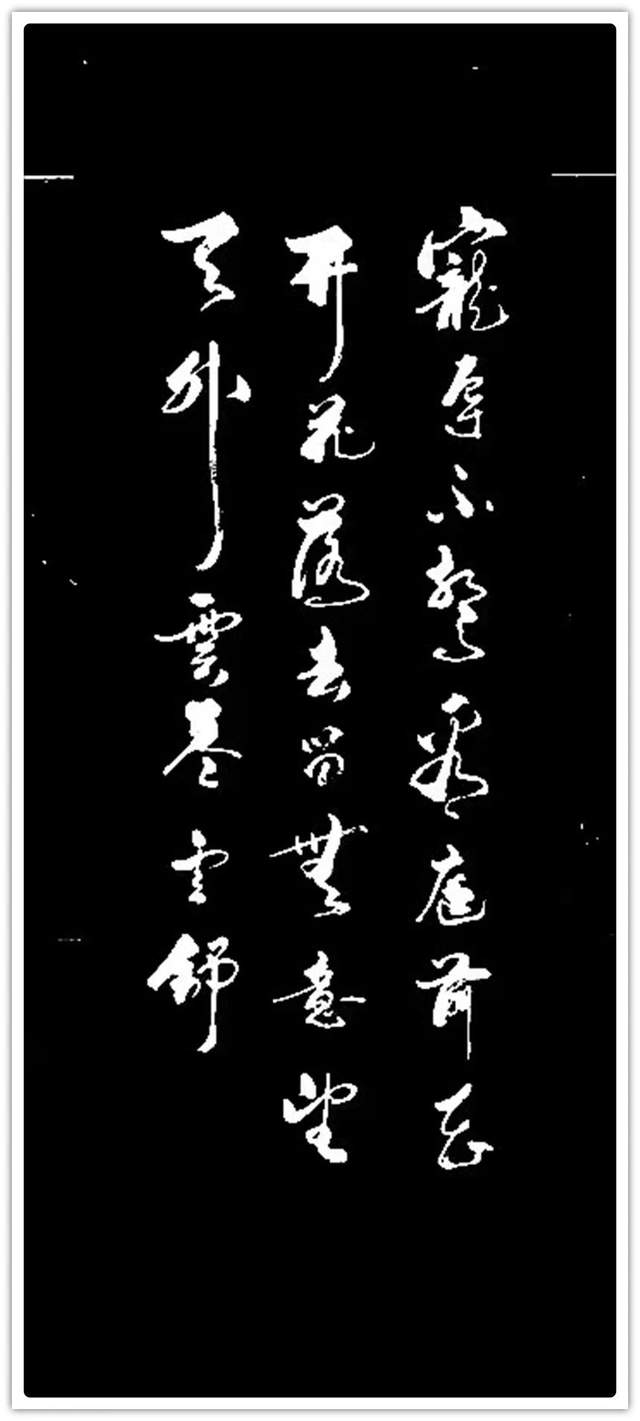 寵辱不驚看庭前花
開花落去留無意望
天外雲卷雲舒